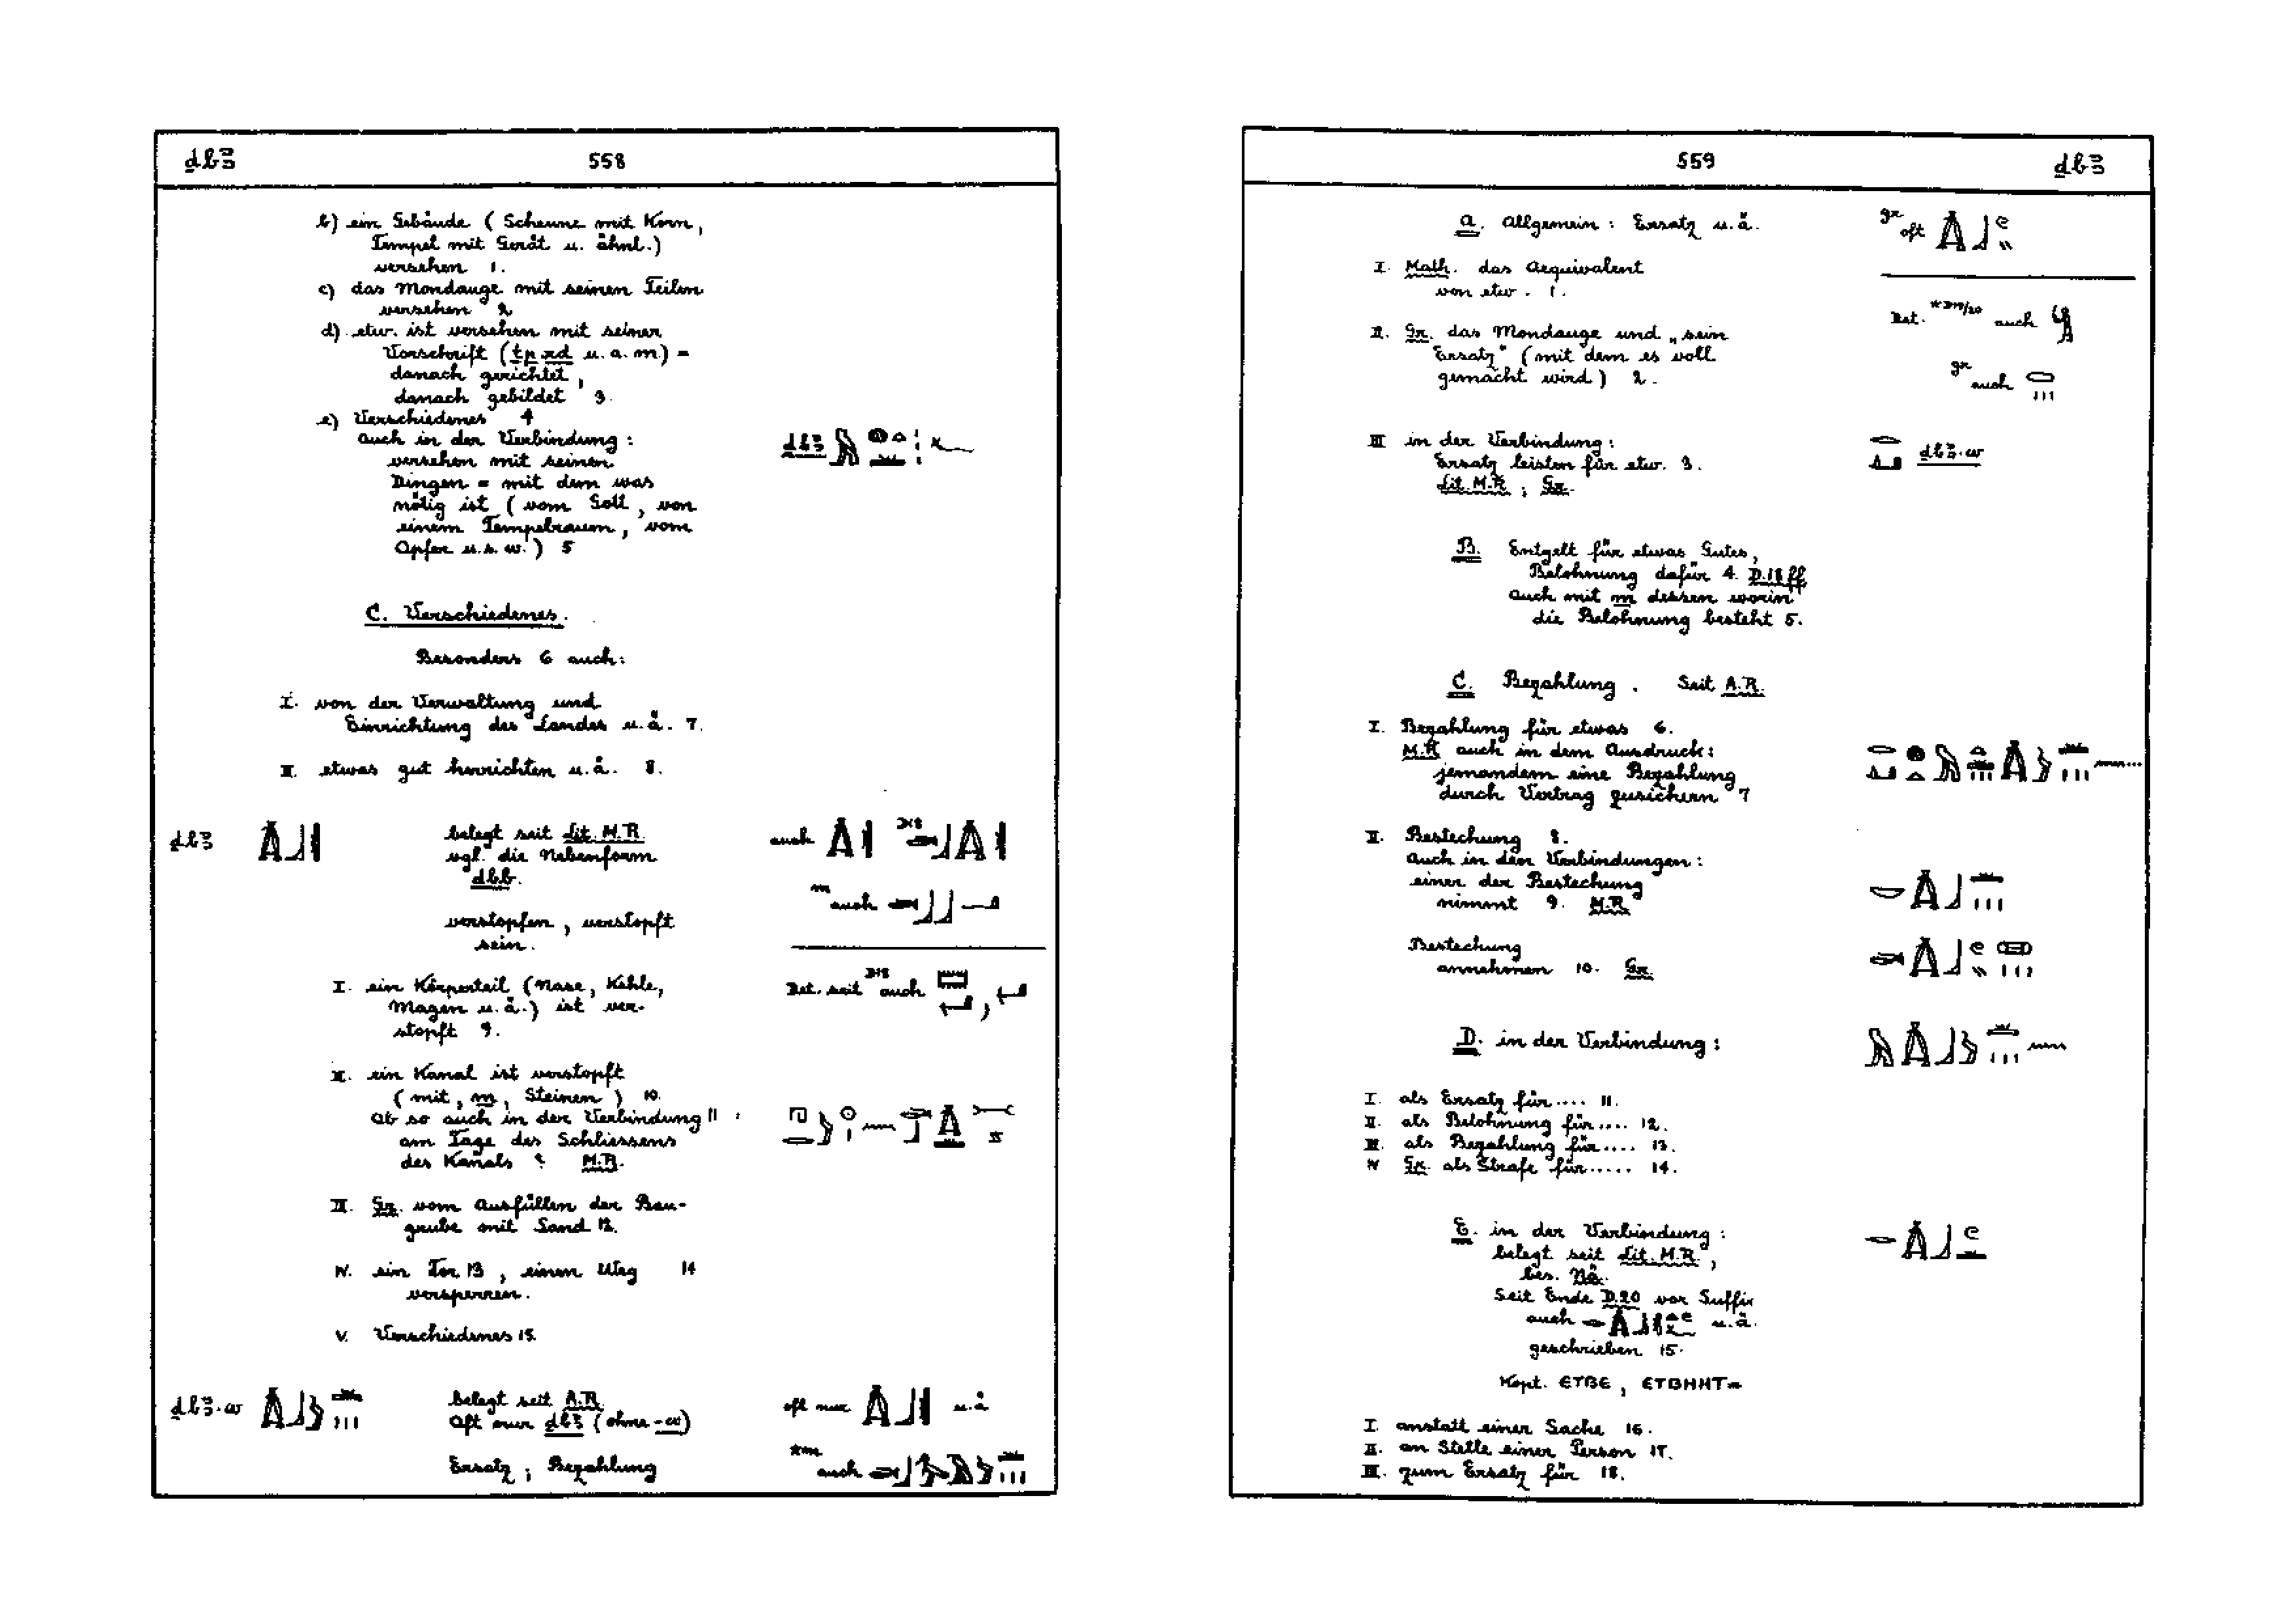 ḏbꜣ
558
b) ein Gebäude (Scheune mit Korn,
Tempel mit Gerät u. ähnl.)
versehen 1.
c) das Mondauge mit seinen Teilen
versehen 2
d) etw. ist versehen mit seiner
Vorschrift (tp rd u. a. m) =
danach gerichtet,
danach gebildet 3.
e) Verschiedenes 4
auch in der Verbindung:
versehen mit seinen
Dingen = mit dem was
nötig ist (vom Gott, von
einem Tempelraum, vom
Opfer u.s.w.) 5
ḏbꜣ
C. Verschiedenes.
Besonders 6 auch:
I. von der Verwaltung und
Einrichtung des Landes u.ä. 7.
II. etwas gut herrichten u.ä. 8.
ḏbꜣ
belegt seit Lit. M.R.
vgl. die Nebenform
ḏbb.
auch
D18
n
auch
verstopfen, verstopft
sein.
I. ein Körperteil (Nase, Kehle,
Magen u.ä.) ist ver-
stopft 9.
Det. seit D18 auch
II. ein Kanal ist verstopft
(mit, m, Steinen) 10.
Ob so auch in der Verbindung 11 :
am Tage des Schliessens
des Kanals ? M.R.
III. Gr. vom Ausfüllen der Bau-
grube mit Sand 12.
IV. ein Tor 13, einen Weg 14
versperren.
V. Verschiedenes 15.
ḏbꜣ.w
belegt seit A.R.
Oft nur ḏbꜣ (ohne -w)
oft nur
u.ä
auch
Ersatz; Bezahlung
559
ḏbꜣ
A. Allgemein: Ersatz u.ä.
gr oft
I. Math. das Aequivalent
von etw. 1.
Det.
auch
II. Gr. das Mondauge und „sein
Ersatz" (mit dem es voll
gemacht wird) 2.
gr auch
III in der Verbindung:
Ersatz leisten für etw. 3.
Lit. M.R; Gr.
ḏbꜣ.w
B. Entgelt für etwas Gutes,
Belohnung dafür 4. D.18 ff
auch mit m dessen worin
die Belohnung besteht 5.
C. Bezahlung. Seit A.R.
I. Bezahlung für etwas 6.
M.R auch in dem Ausdruck:
jemandem eine Bezahlung
durch Vertrag zusichern 7
II. Bestechung 8.
auch in den Verbindungen:
einer der Bestechung
nimmt 9. M.R
Bestechung
annehmen 10. Gr.
D. in der Verbindung:
I. als Ersatz für.... 11.
II. als Belohnung für.... 12.
III. als Bezahlung für.... 13.
IV Gr. als Strafe für..... 14.
E. in der Verbindung:
belegt seit Lit. M.R.,
bes. Nä.
Seit Ende D.20 vor Suffix
auch
u.ä.
geschrieben 15.
Kopt. ⲈⲦⲂⲈ, ⲈⲦⲂⲎⲎⲦ=
I. anstatt einer Sache 16.
II. an Stelle einer Person 17.
III. zum Ersatz für 18.